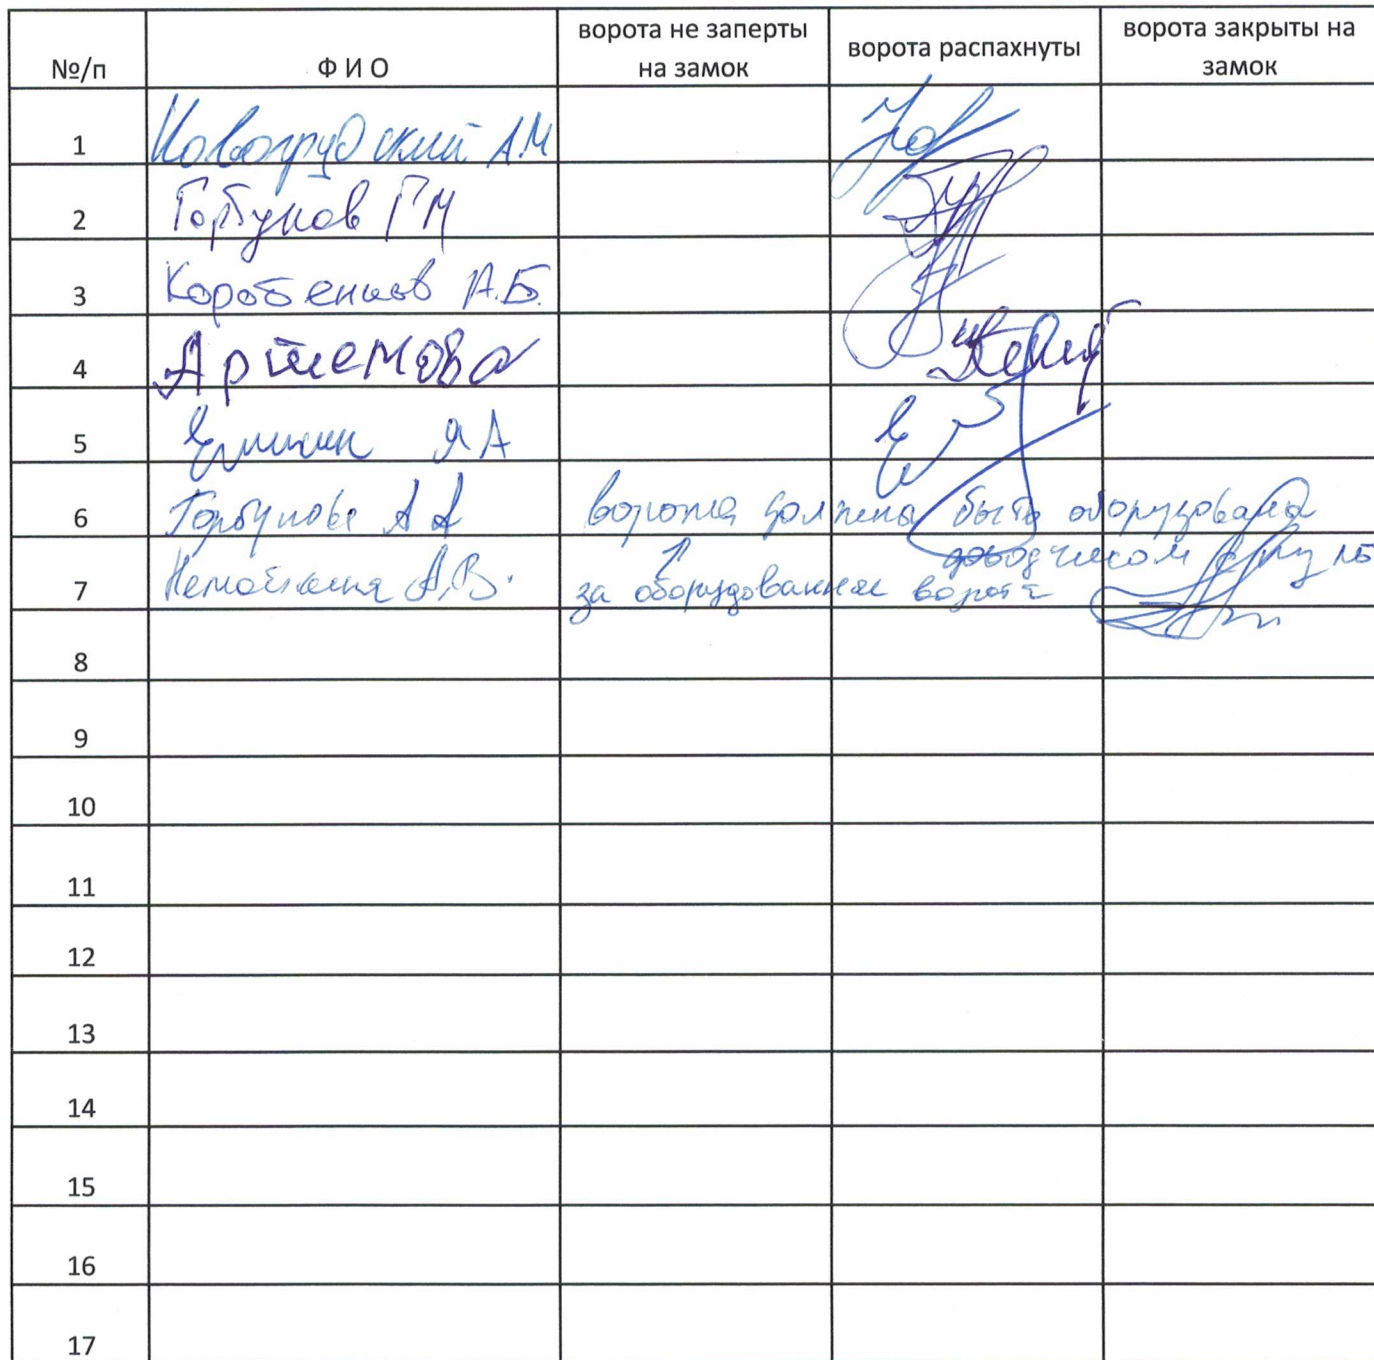 №/п Ф И О ворота не заперты на замок ворота распахнуты ворота закрыты на замок
1 Новогрудский А.М
2 Горбунов Г М
3 Коробенков А.Б.
4 Артемова
5 Я А
6 Горбунова А А ворота должны быть оборудованы
доводчиком
7 А.В. за оборудование ворот
8
9
10
11
12
13
14
15
16
17